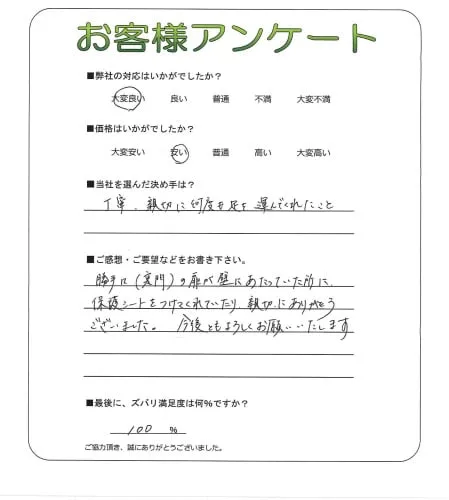 お客様アンケート
■弊社の対応はいかがでしたか？
大変良い　良い　普通　不満　大変不満
■価格はいかがでしたか？
大変安い　安い　普通　高い　大変高い
■当社を選んだ決め手は？
丁寧、親切に何度も足を運んでくれたこと
■ご感想・ご要望などをお書き下さい。
勝手口（裏門）の扉が壁にあたっていた所に、
保護シートをつけてくれていたり、親切にありがとう
ございました。今後ともよろしくお願いいたします
■最後に、ズバリ満足度は何％ですか？
100 ％
ご協力頂き、誠にありがとうございました。